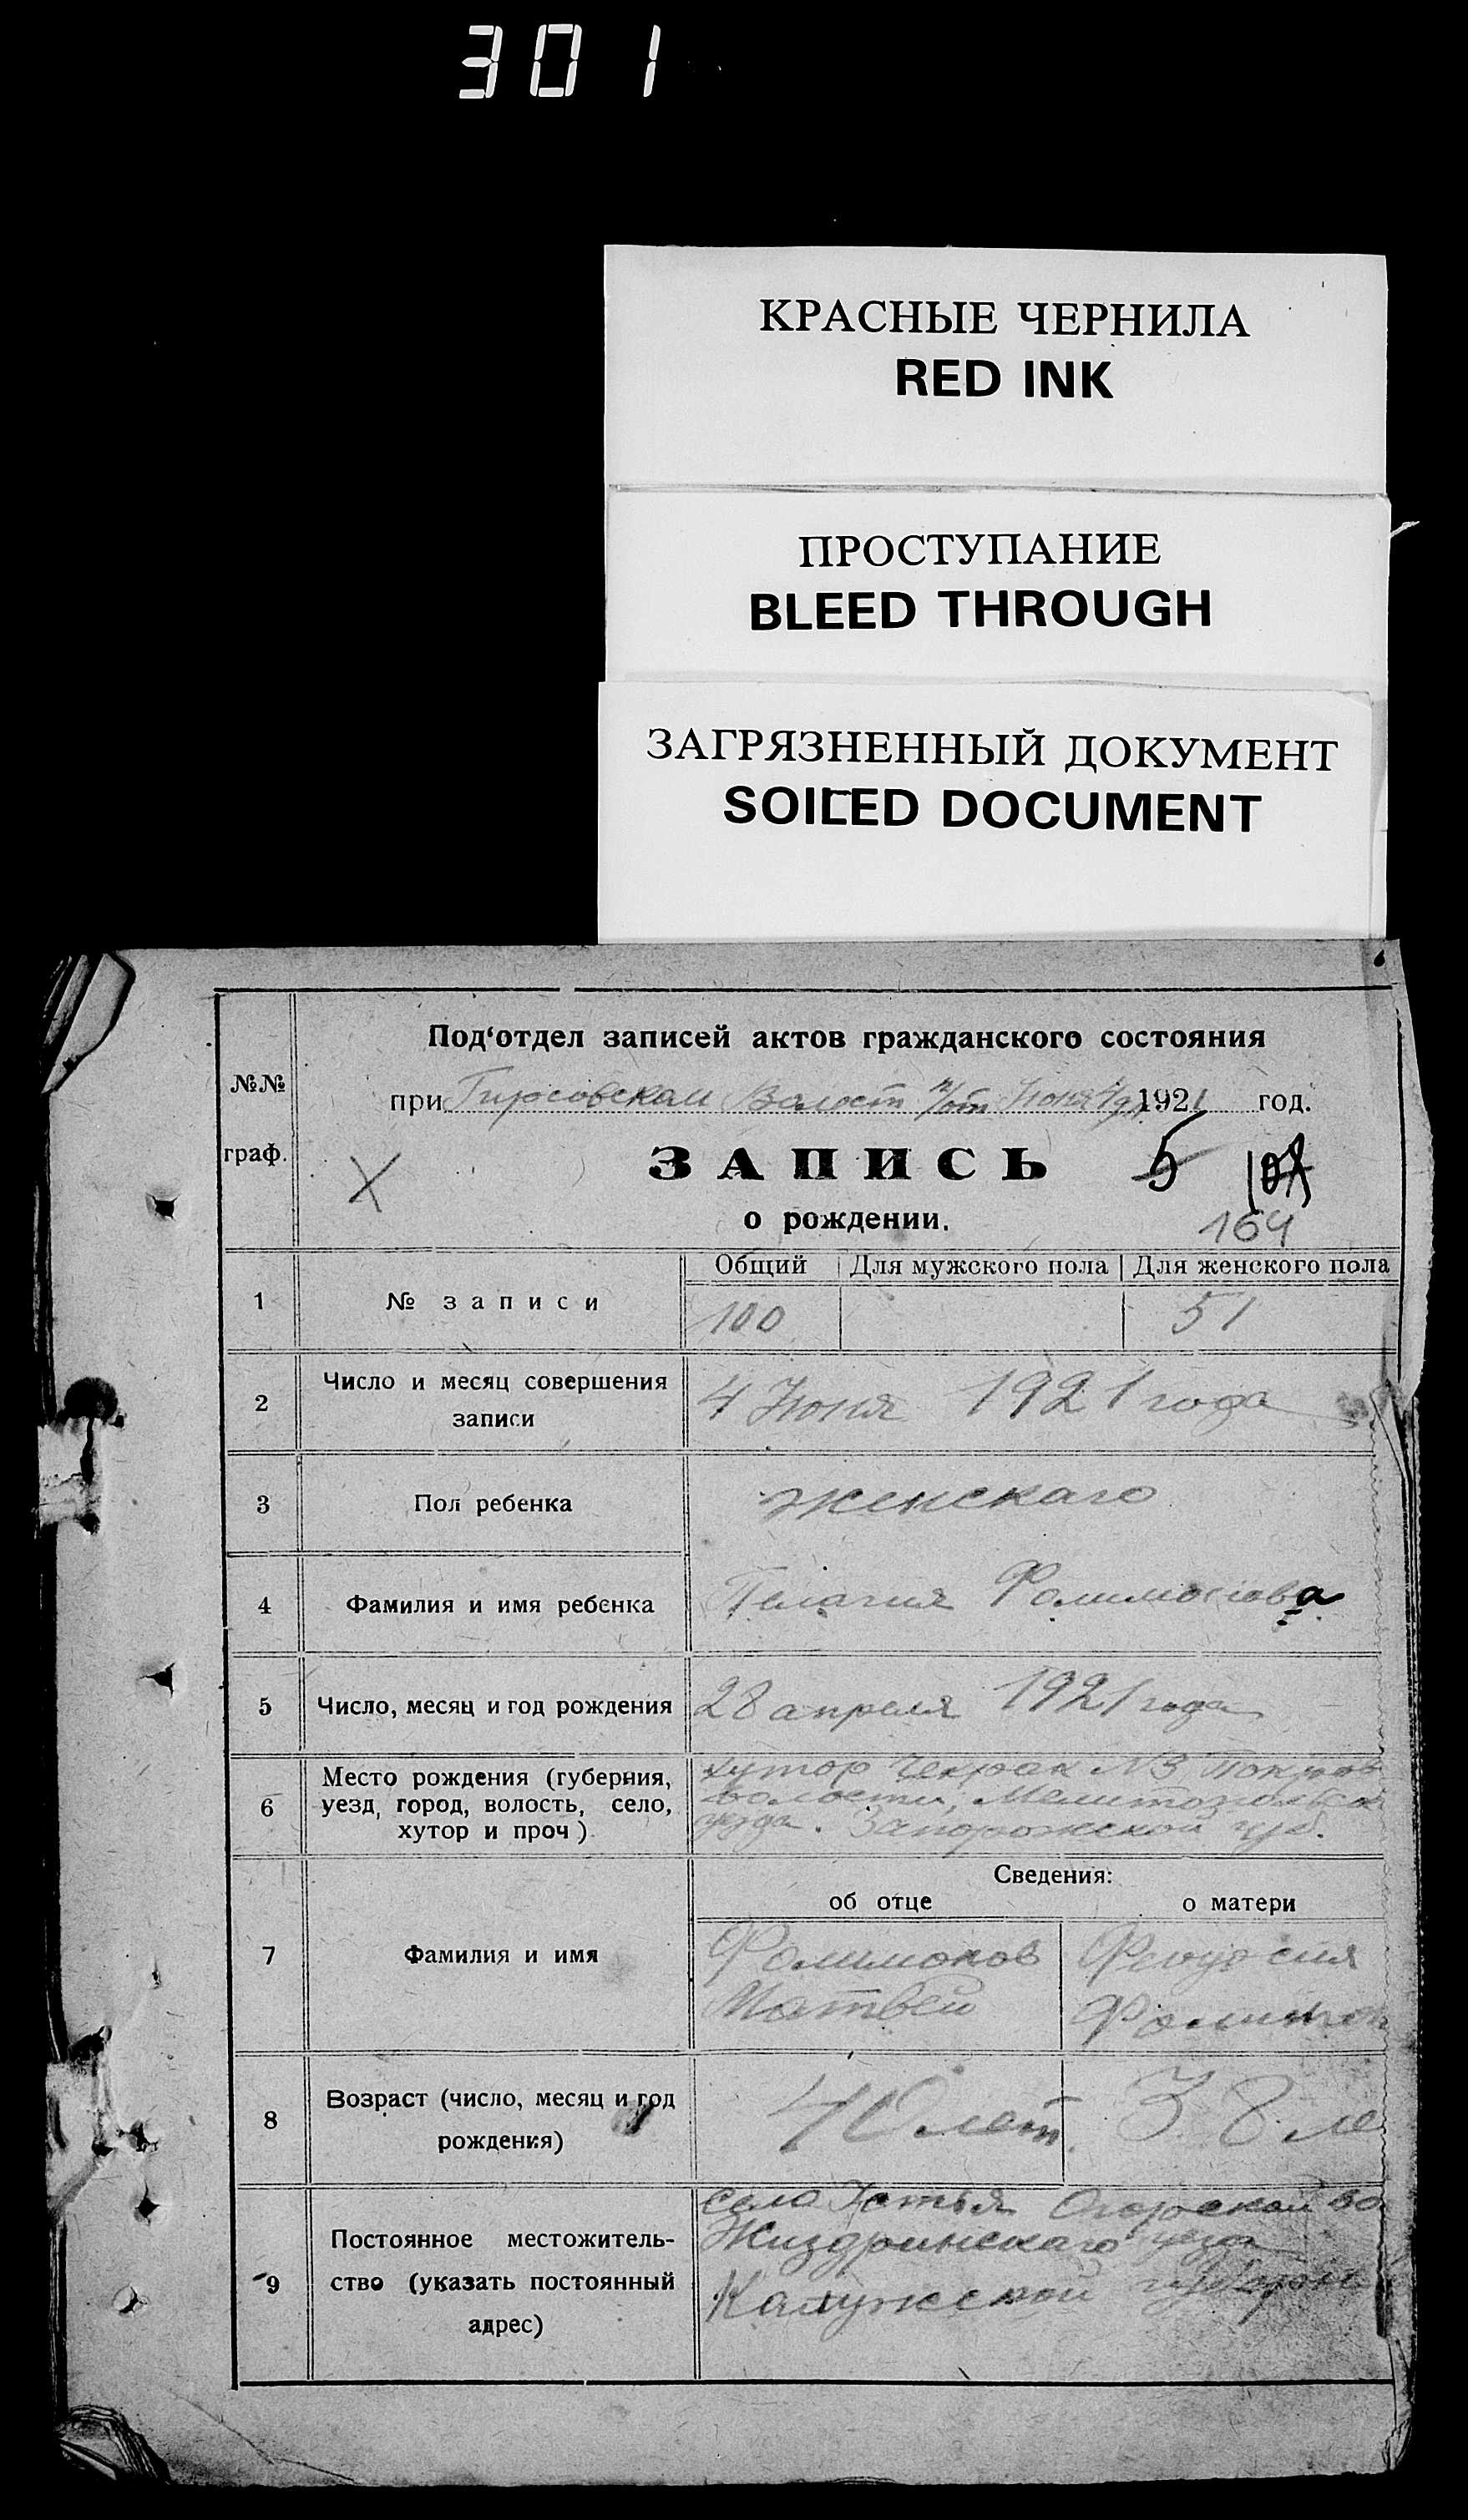 301
КРАСНЫЕ ЧЕРНИЛА
RED INK
ПРОСТУПАНИЕ
BLEED THROUGH
ЗАГРЯЗНЕННЫЙ ДОКУМЕНТ
SOILED DOCUMENT
№№ граф.
Под‘отдел записей актов гражданского состояния
при Волост 1921 год.
ЗАПИСЬ 5
о рождении. 164
Общий Для мужского пола Для женского пола
1 № записи 100 51
2 Число и месяц совершения записи 4 Июня 1921 года
3 Пол ребенка женскаго
4 Фамилия и имя ребенка Пелагия Фолимонова
5 Число, месяц и год рождения 28 апреля 1921 года
6 Место рождения (губерния, уезд, город, волость, село, хутор и проч)
хутор Чекрак №3 Покров
волости, 
уезда. Запорожской губ.
Сведения:
об отце о матери
7 Фамилия и имя
Фолимонов
Матвей
Фолимон
8 Возраст (число, месяц и год рождения) лет. 38 ле
9 Постоянное местожитель-
ство (указать постоянный
адрес)
село Устья во
Жиздринскаго уезда
Калужской